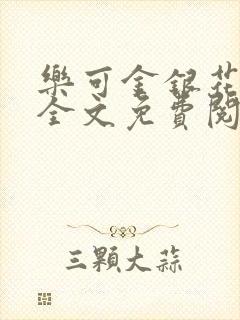 樂可金銀花
全文免費閱
三顆大蒜